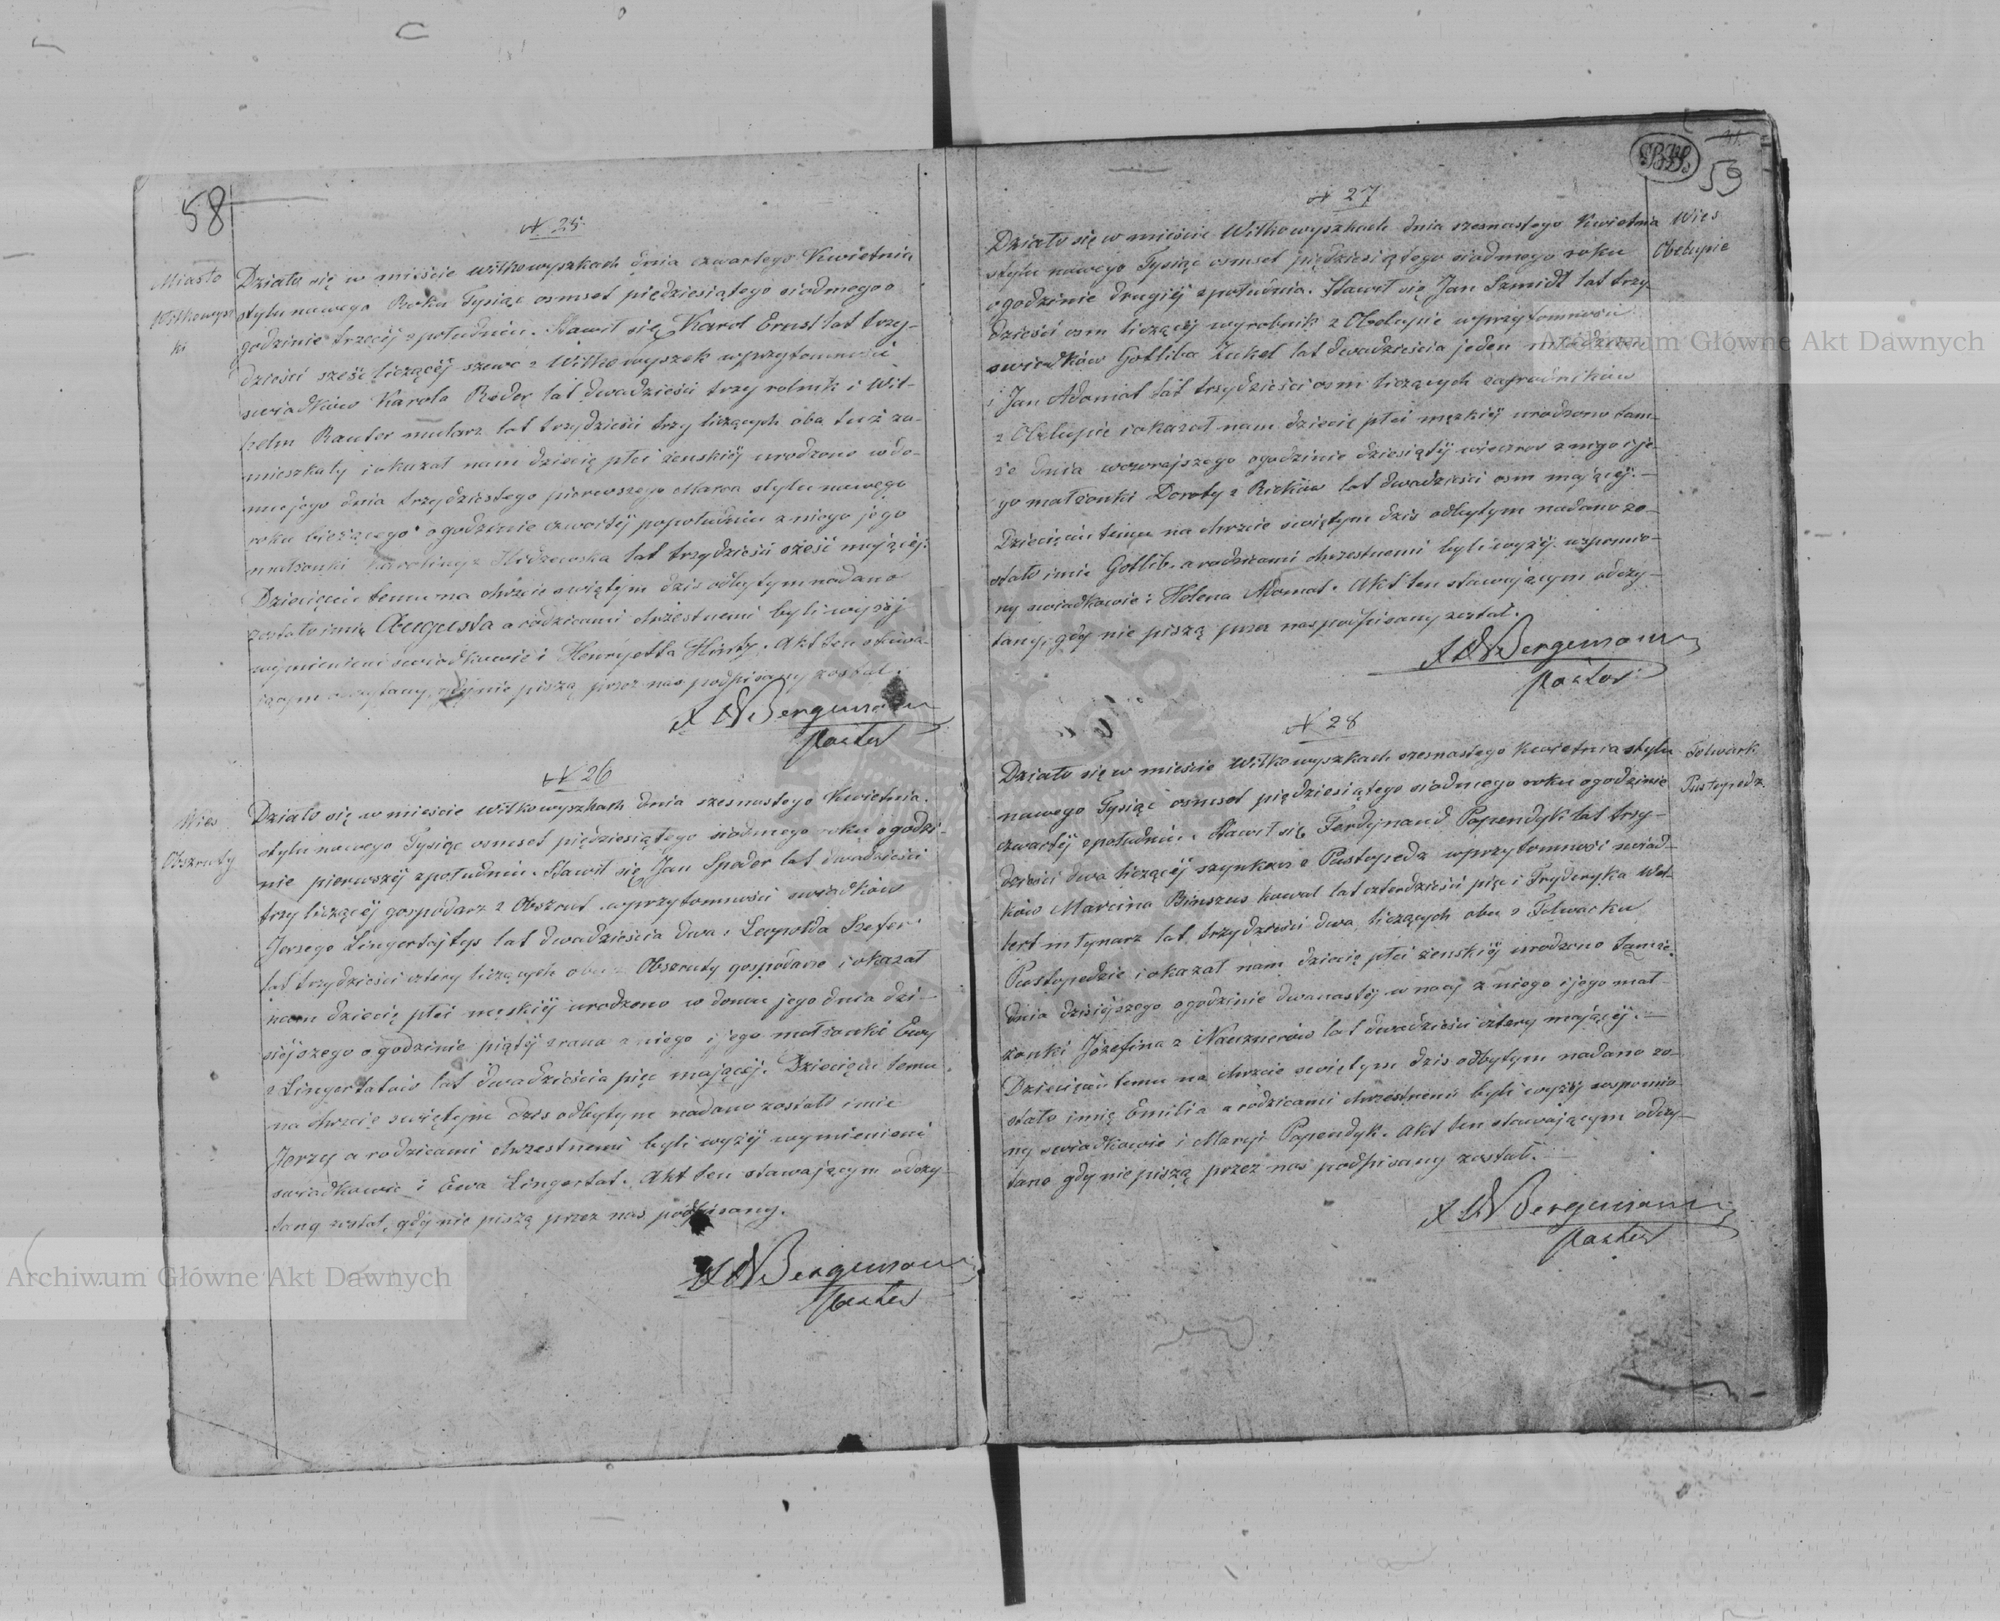 58
N 25
Miasto
Wilkowysz
ki
Działo się w mieście Wilkowyszkach dnia czwartego Kwietnia
stylu nowego Roku Tysiąc osmset piędziesiątego siodmego o
godzinie trzeciéj z południa. Stawił się Karol Ernst lat trzy-
dzieści sześć liczącéj szewc z Wilkowyszek w przytomności
swiadków Karola Reder lat dwadzieści trzy rolnik i Wil-
helm Rauter mularz lat trzydzieści trzy liczących oba tu z za-
mieszkały i okazał nam dziecię płci żenskiéj urodzone w do-
mu jego dnia trzydziestego pierwszego Marca stylu nowego
roku bieżącego o godzinie czwartéj popołudniu z niego jego
małżonki Karoliny z lat trzydzieści sześć mającéj.
Dziecięciu temu na chrzcie swiętym dzis odbytym nadano
zostało imię Augusta a rodzicami chrzestnemi byli wyzéj
wymienieni swiadkowie i Henryetta Hintz. Akt ten stawa-
iącym odczytany, gdy nie piszą przez nas podpisany został.
Bergmann
Pastor
N 26
Wies
Obszruty
Działo się w mieście Wilkowyszkach dnia szesnastego Kwietnia
stylu nowego Tysiąc osmset pięдziesiątego siodmego roku o godzi-
nie pierwszéj z południa. Stawił się Jan Spoder lat dwadzieści
trzy liczącéj gospodarz z Obszrut w przytomności swiadków
Jerzego Lingertajtys lat dwadzieścia dwa i Leopolda Szefer
lat trzydzieści cztery liczących obu z Obszruty gospodarze i okazał
nam dziecię płci męskiéj urodzone w domu jego dnia dzi-
siéjszego o godzinie piątéj z rana z niego i jego małżonki Ewy
z Lingertatow lat dwadzieścia pięc mającéj. Dziecięciu temu
na chrzcie swiętym dzis odbytym nadano zostało imie
Jerzy a rodzicami chrzestnemi byli wyżéj wymienieni
swiadkowie i Ewa Lingertat. Akt ten stawającym odczy-
tany został, gdy nie piszą przez nas podpisany.
Bergmann
Pastor
59
N 27
Wies
Obelupie
Działo się w mieście Wilkowyszkach dnia szesnastego Kwietnia
stylu nowego Tysiąc osmset pięдziesiątego siodmego roku
o godzinie drugiéj z południa. Stawił się Jan Szmidt lat trzy-
dzieści osm liczącéj wyrobnik z Obelupie w przytomności
swiadków Gotliba Zukel lat dwadzieścia jeden
i Jan Adomat lat trzydzieści osm liczących zagrodników
z Obelupie i okazał nam dziecię płci męzkiéj urodzono tam-
że dnia wczorajszego o godzinie dziesiątéj wieczor z niego i je-
go małżonki Doroty z lat dwadzieści osm mającéj.
Dziecięciu temu na chrzcie swiętym dzis odbytym nadano zo-
stało imie Gotlib, a rodzicami chrzestnemi byli wyżéj wspomnio-
ny swiadkowie i Helena Adomat. Akt ten stawającym odczy-
tany, gdy nie piszą przez nas podpisany został.
Bergmann
Pastor
N 28
Folwark
Pustopedz
Działo się w mieście Wilkowyszkach szesnastego Kwietnia stylu
nowego Tysiąc osmset pięдziesiątego siodmego roku o godzinie
czwartéj z południa. Stawił się Ferdynand Papendyk lat trzy-
dzieści dwa liczącéj szynkarz z Pustopedz w przytomności swiad-
ków Marcina Binszus kowal lat czterdzieści pięc i Fryderyka Wel-
lert młynarz lat trzydzieści dwa liczących obu z Folwarku
Pustopedzie i okazał nam dziecię płci żenskiéj urodzono tamże
dnia dzisiéjszego o godzinie dwanastéj w nocy z niego i jego mał-
żonki Józefina z lat dwadzieści cztery mającéj.
Dziecięciu temu na chrzcie swiętym dzis odbytym nadano zo-
stało imię Emilia a rodzicami chrzestnemi byli wyżéj wspomnio-
ny swiadkowie i Maryi Papendyk. Akt ten stawającym odczy-
tano gdy nie piszą przez nas podpisany został.
Bergmann
Pastor
Archiwum Główne Akt Dawnych
Archiwum Główne Akt Dawnych